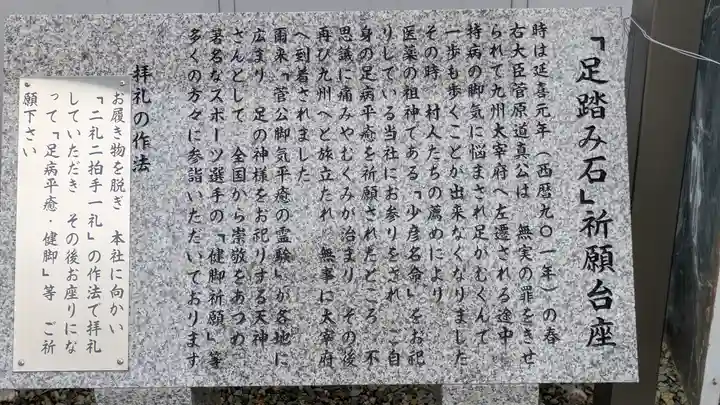 「足踏み石」祈願台座
時は延喜元年（西暦九〇一年）の春
右大臣菅原道真公は 無実の罪をきせ
られて九州太宰府へ左遷される途中
持病の脚気に悩まされ足がむくんで
一歩も歩くことが出来なくなりました
その時 村人たちの薦めにより
医薬の祖神である「少彦名命」をお祀
りしている当社にお参りをされ ご自
身の足病平癒を祈願されたところ 不
思議に痛みやむくみが治まり その後
再び九州へと旅立たれ 無事に太宰府
へ到着されました
爾来「菅公脚気平癒の霊験」が各地に
広まり 足の神様をお祀りする天神
さんとして 全国から崇敬をあつめ
著名なスポーツ選手の「健脚祈願」等
多くの方々に参詣いただいております
拝礼の作法
お履き物を脱ぎ 本社に向かい
「二礼二拍手一礼」の作法で拝礼
していただき その後お座りにな
って「足病平癒・健脚」等 ご祈
願下さい